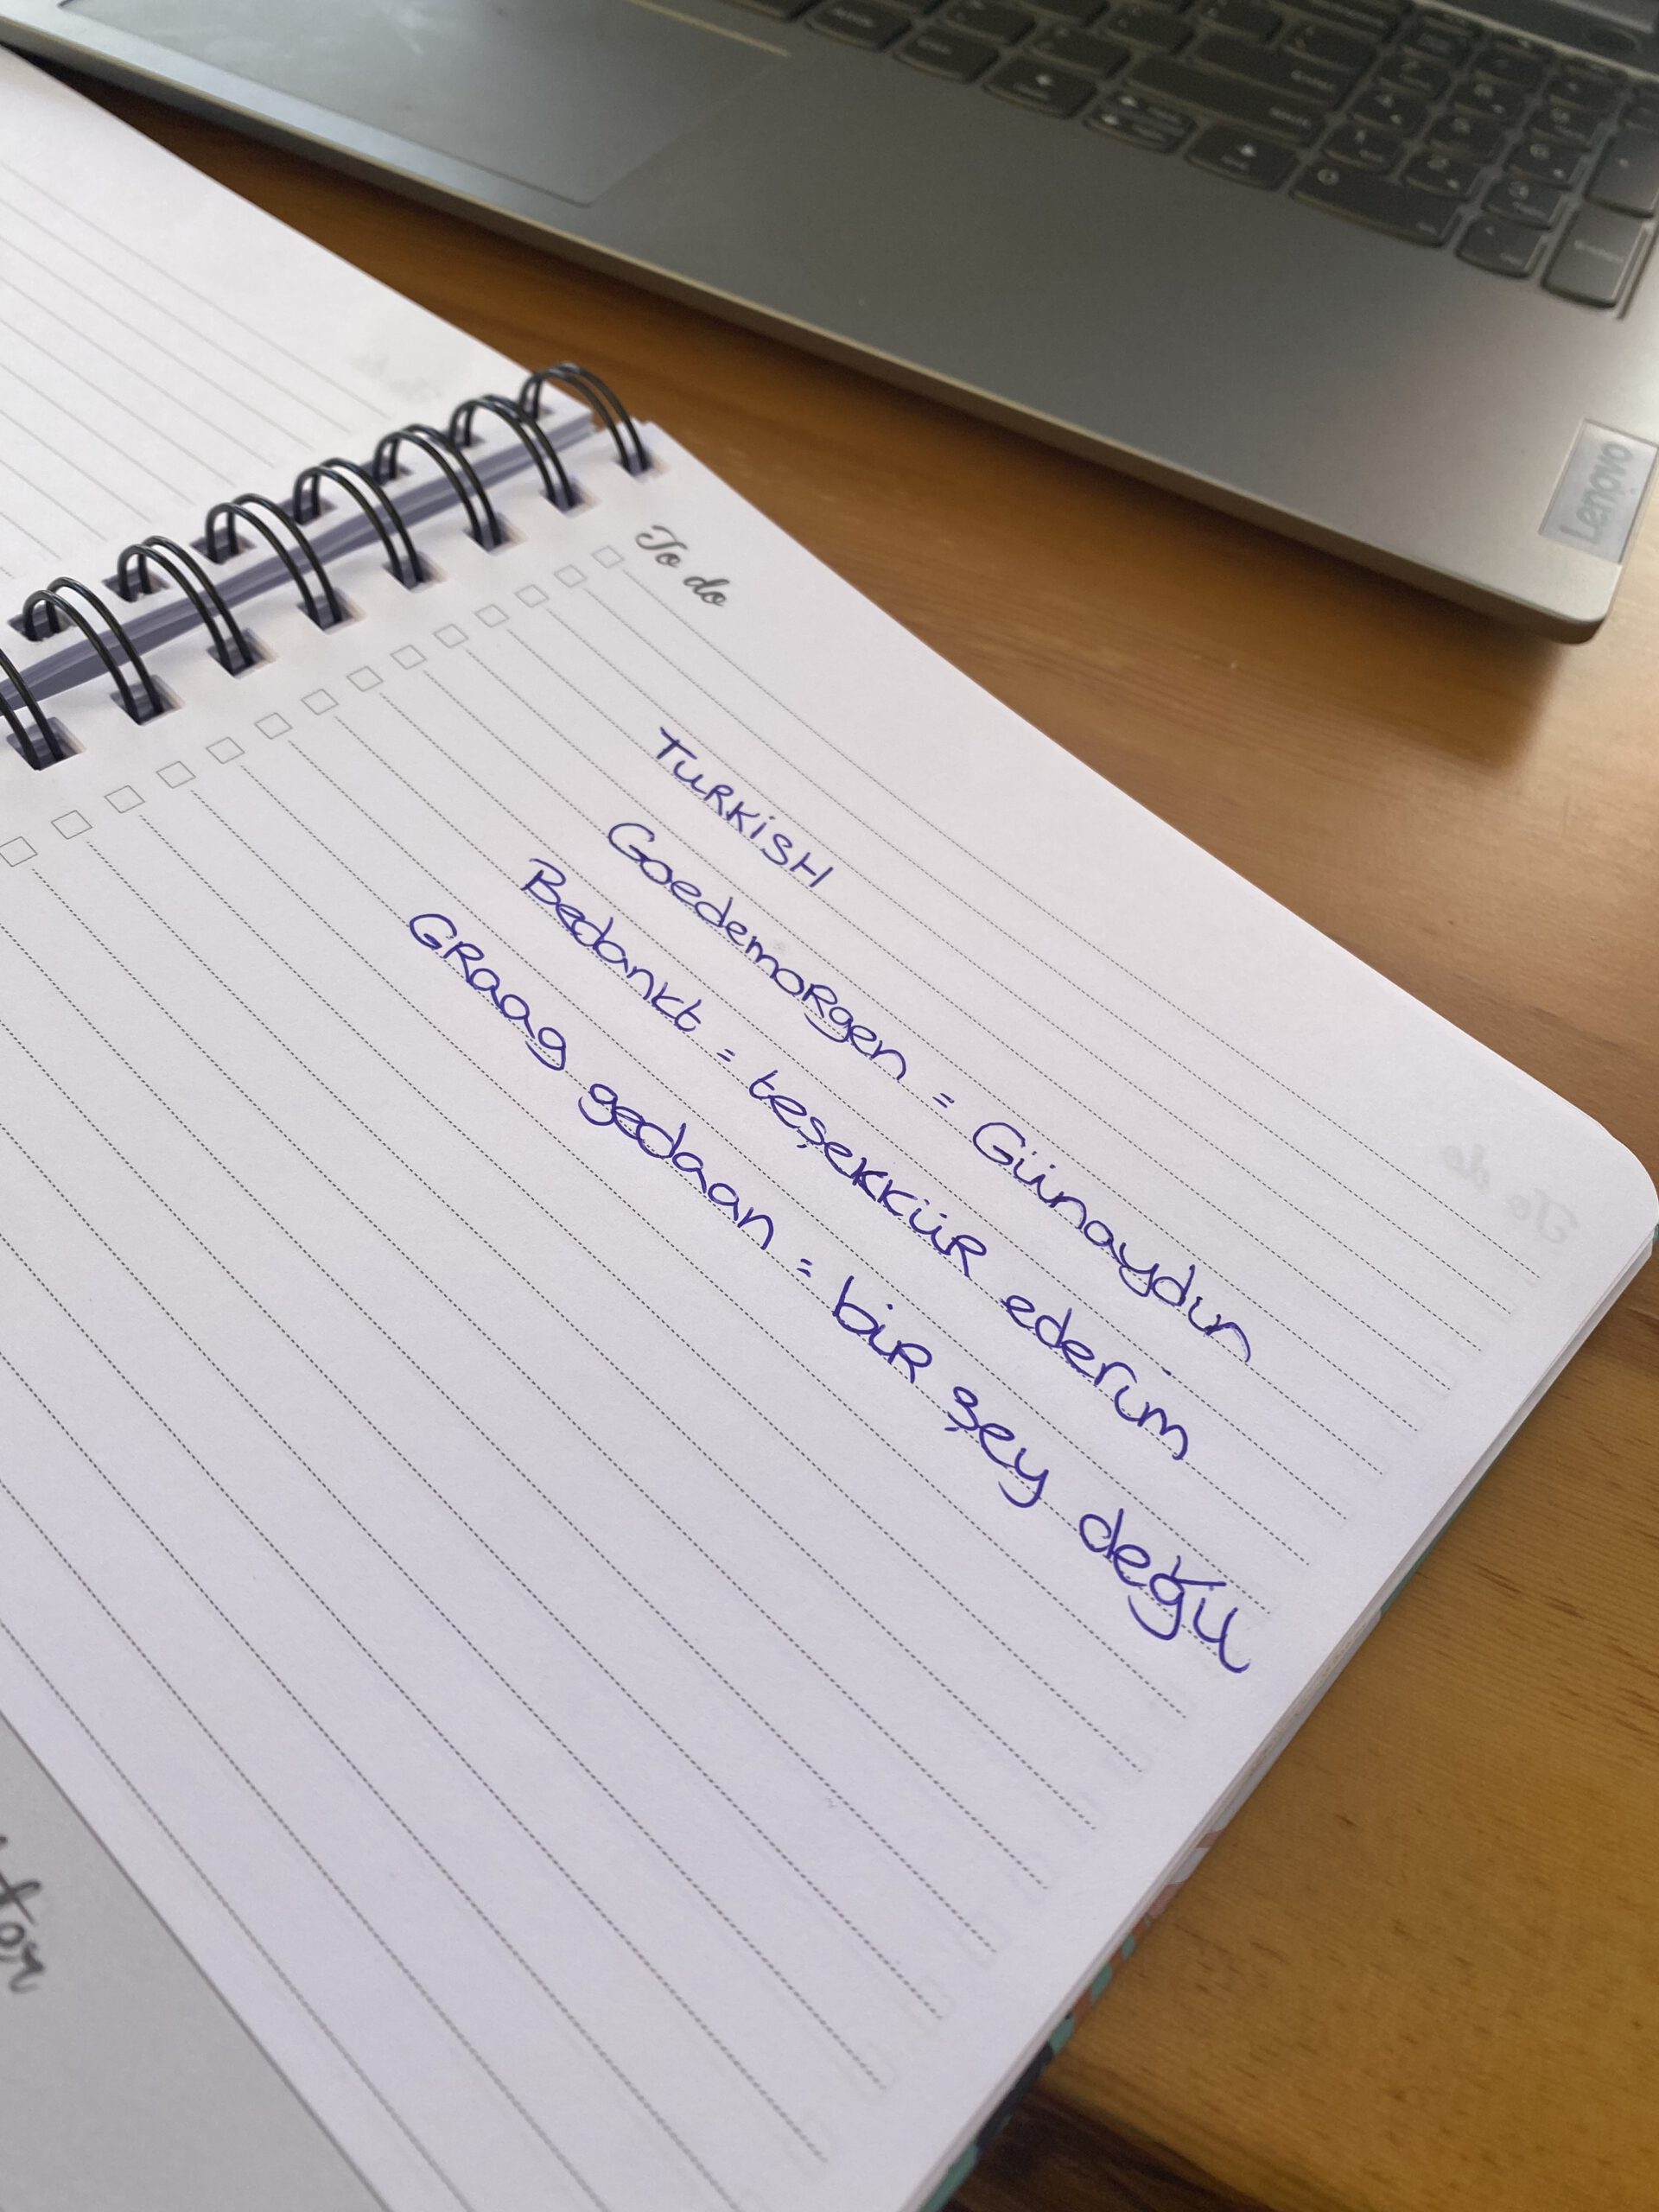 Lenovo
To do
TURKiSH
GoedemoRgen = Günaydın
Bedankt = teşekküR ederim
GRaag gedaan = biR şey değil